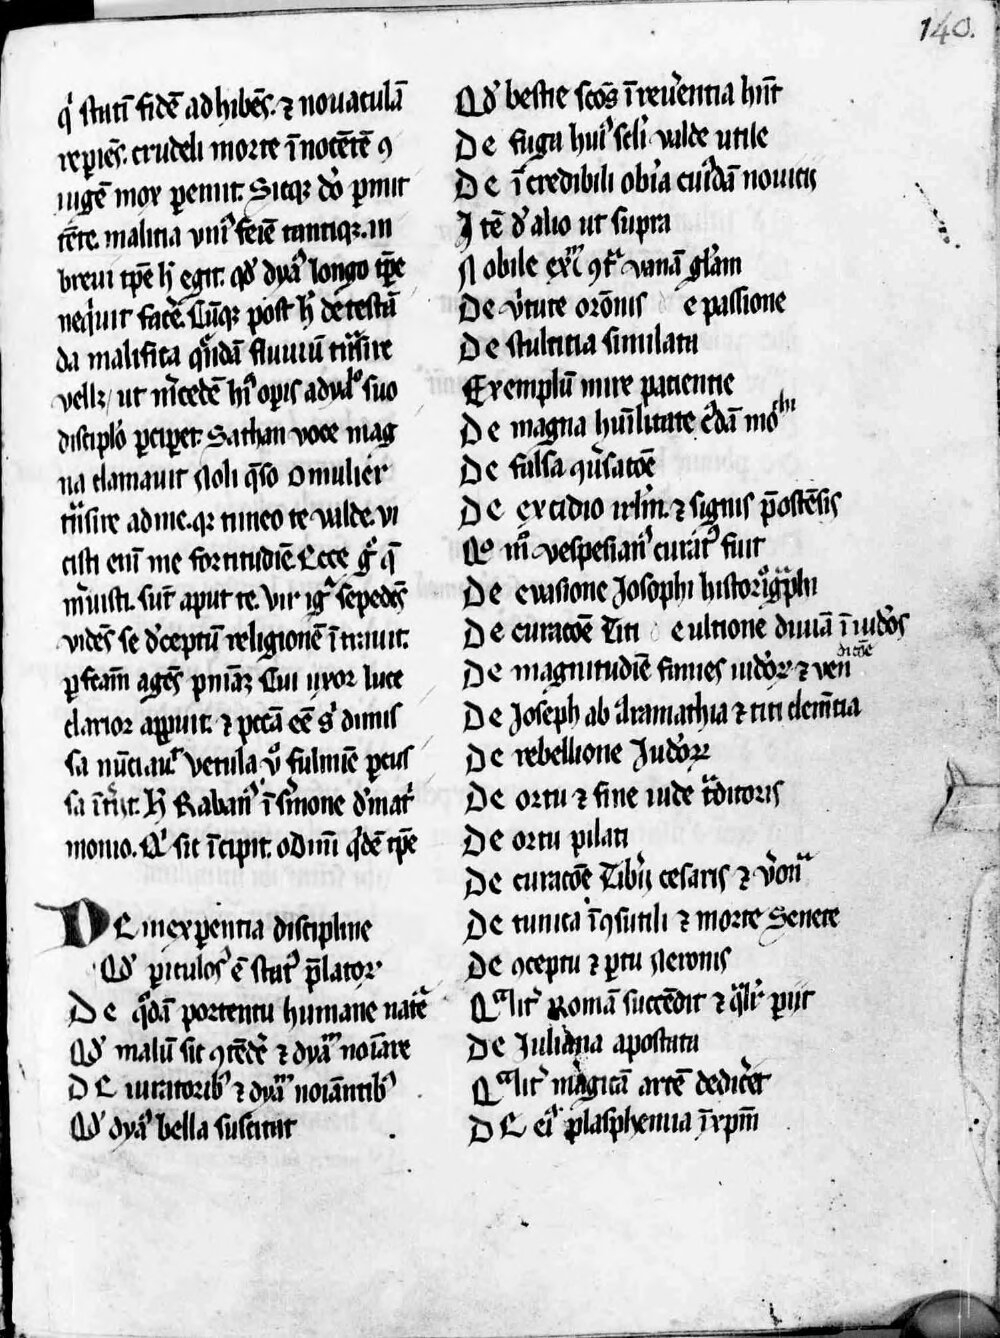 140.
q' statī fidē adhibēs. ⁊ novaculā
reꝑiēs. crudeli morte īnocētē ꝯ
iugē mox ꝑemit. Sicqꝫ d'o ꝑmit
tēte. malitia uniꝰ feīe tantiqꝫ. in
brevi tꝑe h' egit. qd' dyaꝰ longo tꝑe
neq'uit facē. Cūqꝫ post h' detestā
da malifica q'dā fluuiū trāsire
vellꝫ / ut m̄cedē hꝰ oꝑis ad vulꝰ suo
discipl'o ꝑciꝑet. Sathan voce mag
na clamavit Noli q̄so o mulier
trāsire ad me. qꝫ timeo te valde. vi
cisti eni me fortitudiē Ecce gͦ q̄
m̄uisti. sūt aput te. Vir igꝰ sepedēs
vidēs se d'ceptū religionē ītravit.
ꝑfcām agēs pn̄iaꝫ Cui uxor luce
clarior apꝑuit. ⁊ pccā eē s' dimis
sa nūciavꝰ vetula vͦ fulmiē ꝑcus
sa īt'ijt. H' Rabanꝰ ī s'mone d' mat'
monio. Qꝰ sic īcipit. odinī q'dē tꝑe
DE inexꝑientia discipline
Qd' ꝑiculosꝰ ē statꝰ p̄latoꝝ
De q'dā portentu humane natͤ
Qd' malū sit ꝯtēdē ⁊ dyaͫ noīare
DE iuratoribꝰ ⁊ dyaͫ noīantibꝰ
Qd' dyaꝰ bella suscitat
Qd' bestie scōs ī reverentia hn̄t
De fuga huiꝰ sc'li valde utile
De īcredibili obīa cui'dā novicij
Itē d' alio ut supra
Nobile exͫ ꝯtͣ vanā gl'am
De v'tute or̄onis De passione
De stultitia simulata
Exemplū mire patientie
De magna hu'ilitate c'dā moͨͪⁱ
De falsa ꝯv'sac̄oē
De excidio irl'm. ⁊ signis p̄ostēsis
Quōm Vespesianꝰ curatꝰ fuit
De evasione Josophi historiog̈phi
De curac̄oē Titi De ultione diuiā ī iud'os
De magnitudiē famis iud'oꝝ ⁊ vendic̄oē
De Joseph ab Aramathia ⁊ titi clem̄tia
De rebellione Jud'oꝝ
De ortu ⁊ fine iude t'ditoris
De ortu pilati
De curac̄oē Tib'ij cesaris ⁊ V'on̄ͣ
De tunica īꝯsutili ⁊ morte Senece
De ꝯceptu ⁊ ꝑtu Neronis
Qͣlit' Romā succēdit ⁊ q'lit' ꝑijt
De Juliana apostata
Qͣlit' magicā artē dedic'et
DE eiꝰ plasphemia ī xpm̄